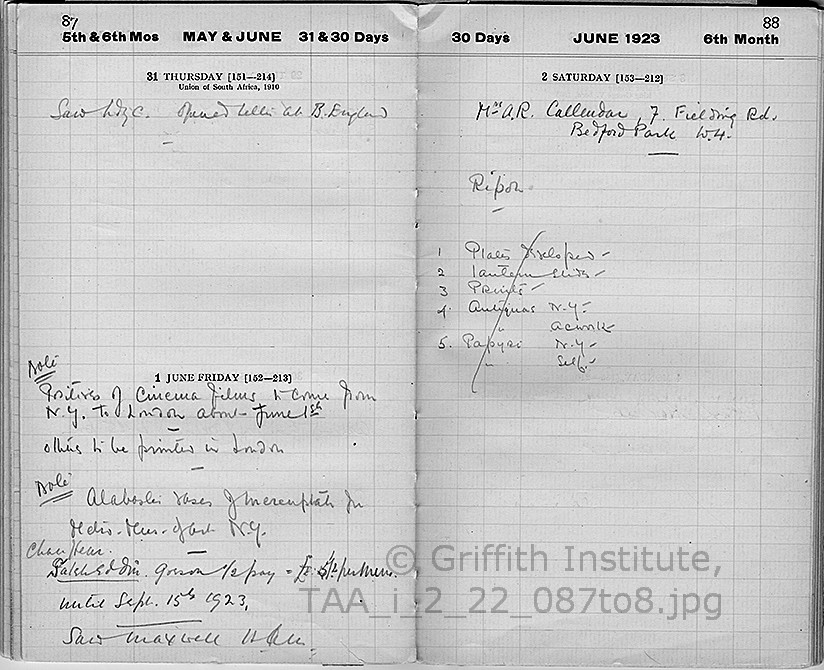 87
5th & 6th Mos MAY & JUNE 31 & 30 Days
31 THURSDAY [151—214]
Union of South Africa, 1910
Saw Ldy C. opened at B. England
Note
1 JUNE FRIDAY [152—213]
Positives of Cinema films to come from
N.Y. to London about June 1st
others to be printed in London
Note
Alabaster vases of Merenptah for
N.Y.
1/2 pay = £ per Mens.
until Sept. 15th 1923.
Saw Maxwell
88
30 Days JUNE 1923 6th Month
2 SATURDAY [153—212]
Mrs A.R. Callendar, 7. Fielding Rd.
Bedford Park W.4.
Ripon
1 Plates developed
2 lantern slides
3 Prints
4. Antiquas N.Y.
" 
5. Papyri N.Y.
" Self.
© Griffith Institute,
TAA_i_2_22_087to8.jpg